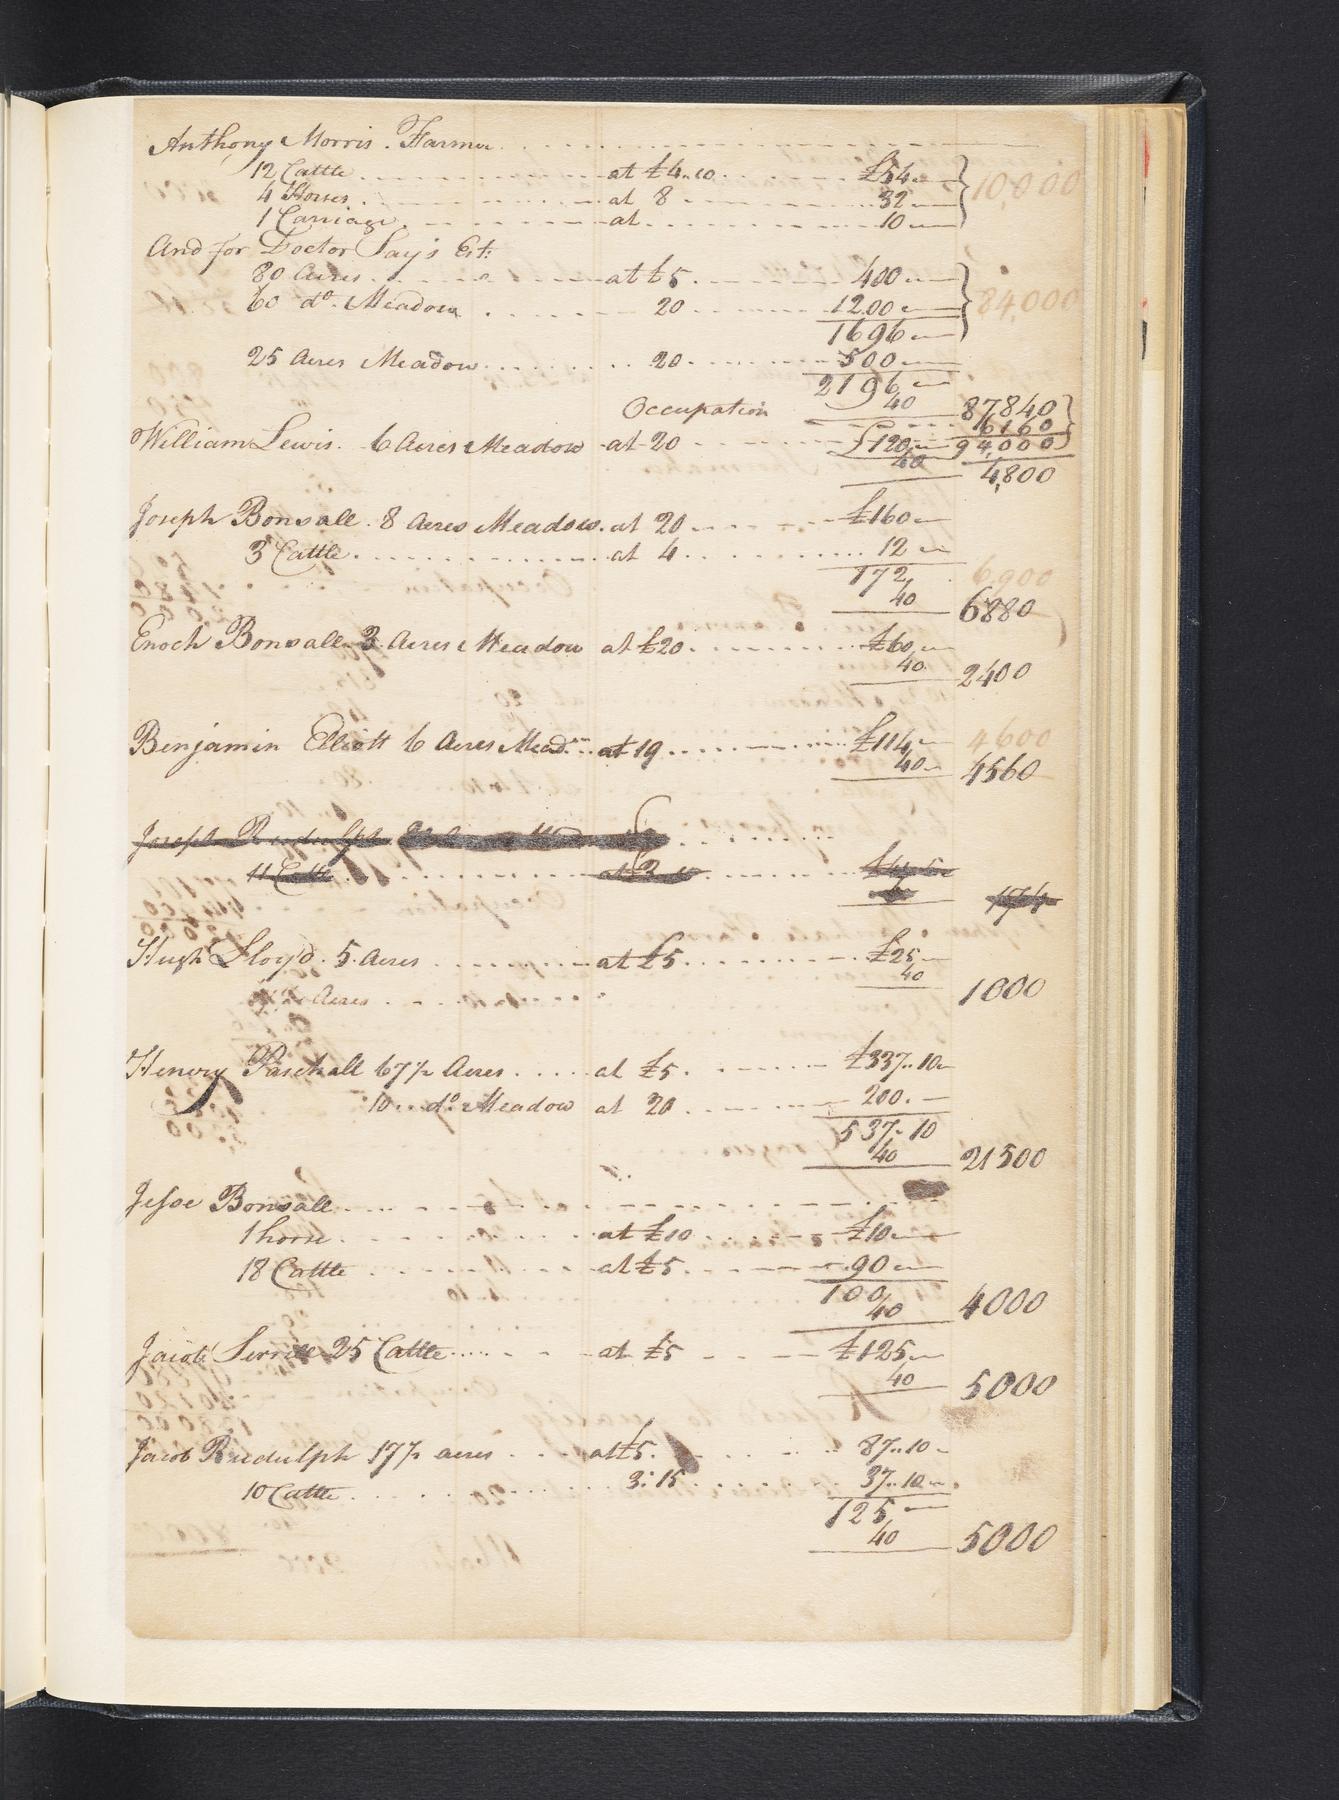 Anthony Morris. Farmer
12 Cattle at £4..10 £54 10,000
4 Horses at 8 32
1 Carriage at 10
And for Doctor Say's Est:
80 Acres at £5 400 84,000
60 do. Meadow 20 1200
1696
25 Acres Meadow 20 500
2196
Occupation 40 87840
6160
William Lewis. 6 Acres Meadow at 20 £120 94,000
40 4,800
Joseph Bonsall. 8 Acres Meadow at 20 £160
3 Cattle at 4 12
172 6,900
40 6880
Enoch Bonsall 3 Acres Meadow at £20 £60
40 2400
Benjamin Elliott 6 Acres Mead.w at 19 £114 4600
40 4560
Joseph Rudulph
11 Cattle at 3
Hugh Lloyd. 5. Acres at £5 £25
40 1000
Acres
Henry Paschall 67½ Acres at £5 £337..10
10 do. Meadow at 20 200.
537..10
40 21500
Jesse Bonsall
1 horse at £10 £10
18 Cattle at £5 90
100
40 4000
Jacob Serrill 25 Cattle at £5 £125
40 5000
Jacob Rudulph 17½ acres at £5. 87..10
10 Cattle 3:15 37..10
125
40 5000